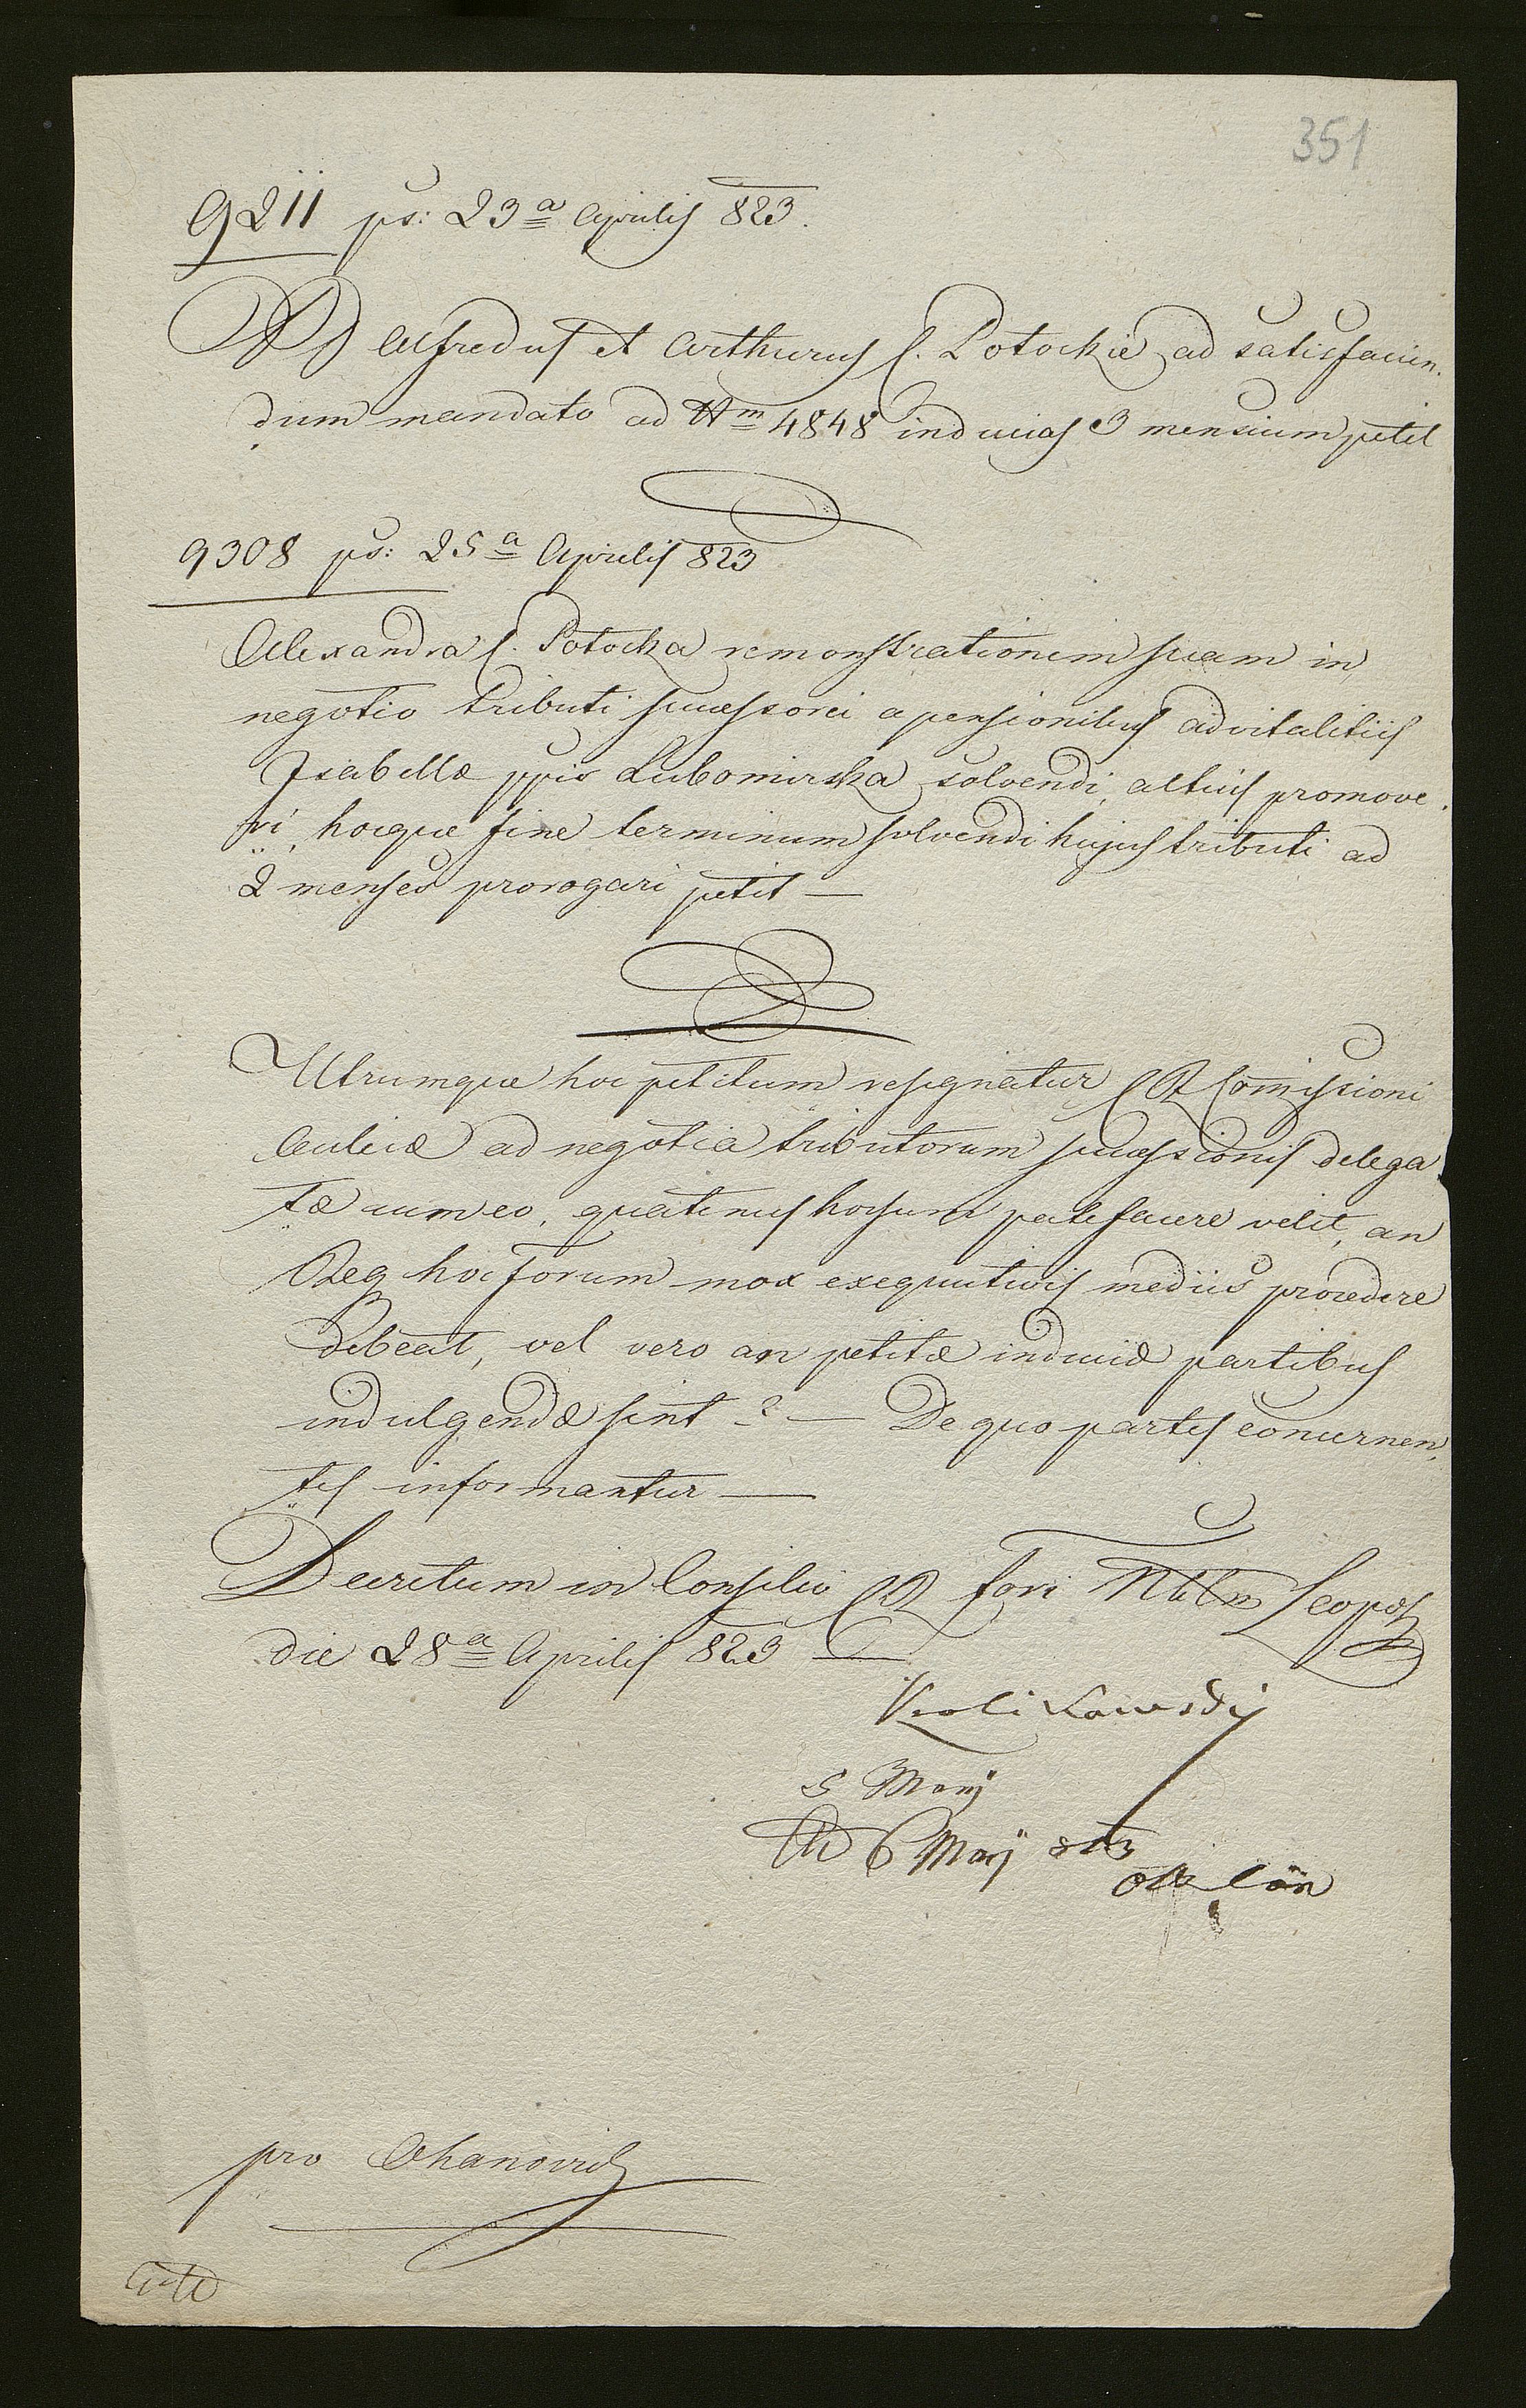 351
9211 ps: 23ª Aprilis 823.
DD Alfredus et Arthurus C. Potockie ad satisfacien-
dum mandato ad Nm 4848 inducias 3 mensium petit
9308 ps: 25ª Aprilis 823
Alexandra C. Potocka remonstrationem suam in
negotio tributi successorei a pensionibus advitalitiis
Isabellæ ppis Lubomirska solvendi, altius promove-
ri, hocque fine terminum solvendi hujus tributi ad
2 menses prorogari petit —
Utrumque hoc petitum resignatur CR Comissioni
Aulicæ ad negotia tributorum successionis delega
tæ cum eo, quatenus horsum patefacere velit, an
Reg hoc forum mox exequutivis mediis procedere
debeat, vel vero an petitæ induciæ partibus
indulgendæ sint ? — De quo partes concernen-
tes informantur —
Decretum in Consilio CR fori Nblm Leopol
die 28ª Aprilis 823 —
Krolikowski
5 Maij
6 Maij 823
pro Ohanovich